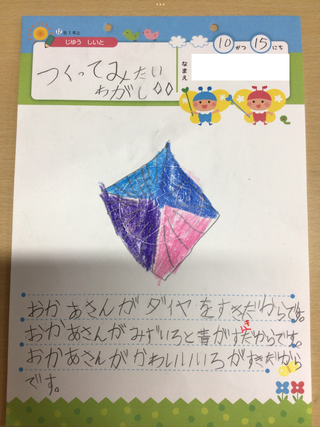 じゆう しいと
10がつ 15にち
なまえ
つくってみたい
わがし
おかあさんがダイヤをすきだからです。
おかあさんがみずいろと青がすきだからです。
おかあさんがかわいいいろがすきだから
です。